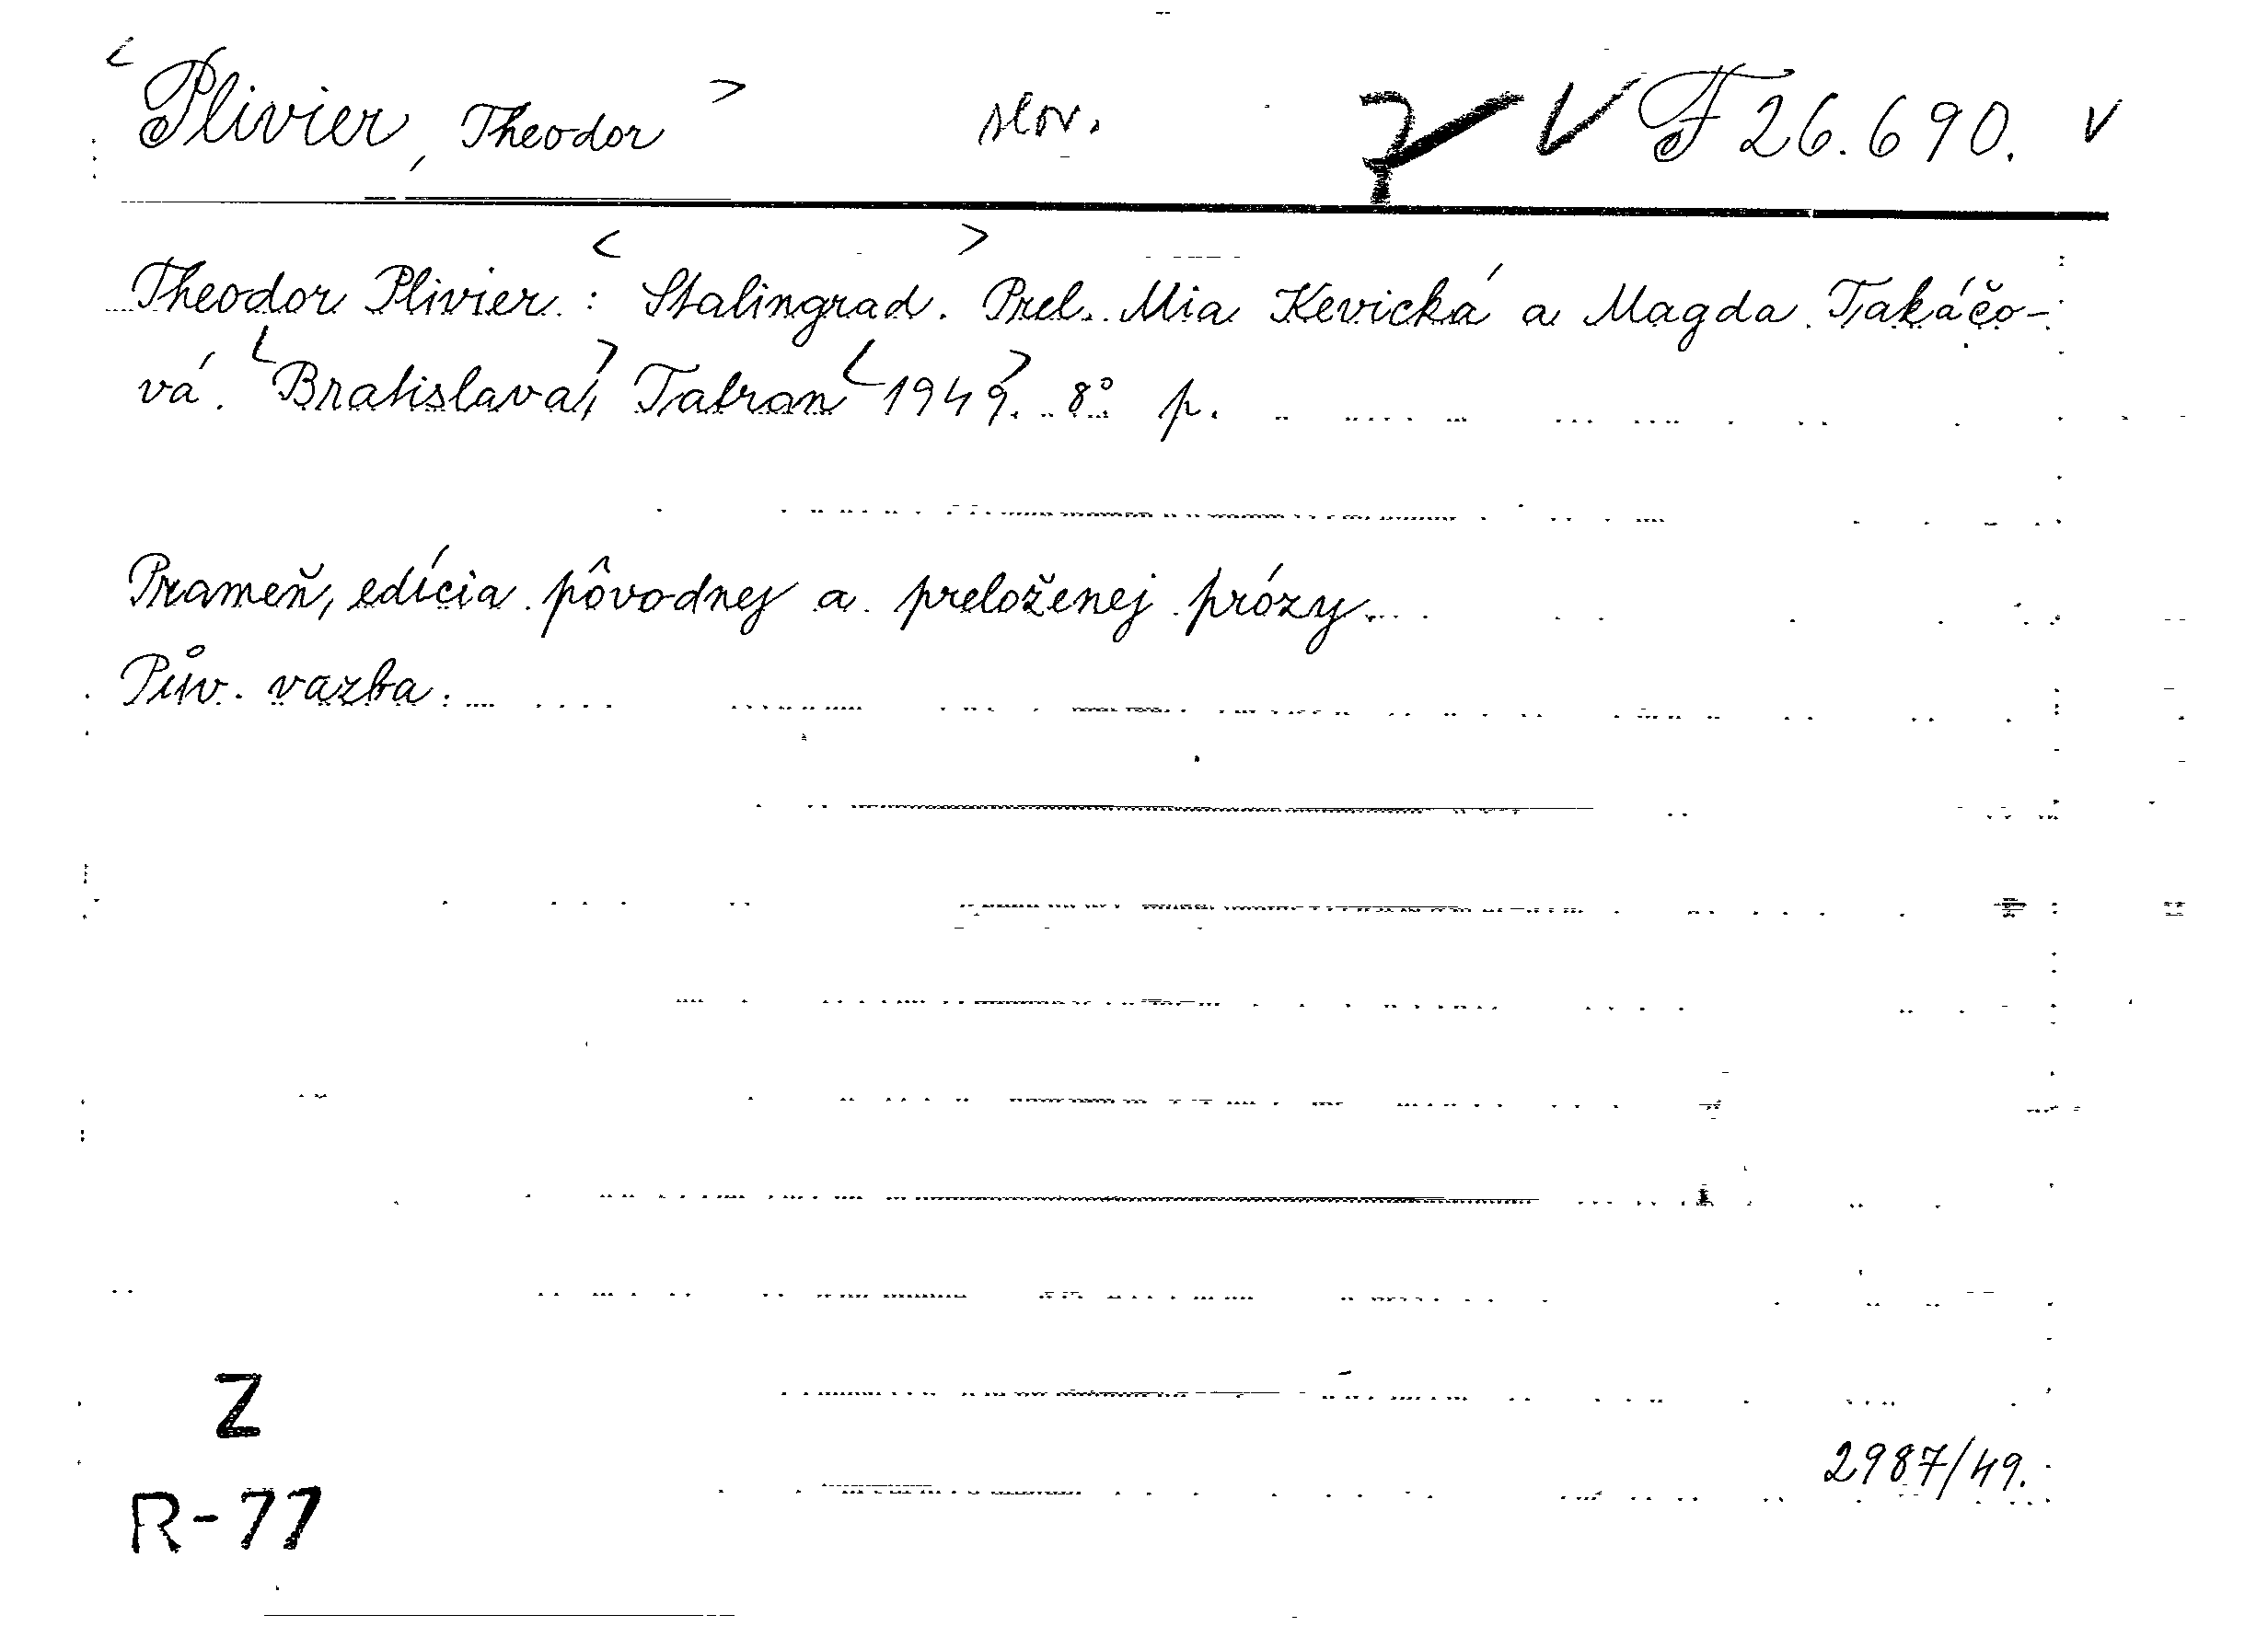 <Plivier, Theodor> slov. V F 26.690. v
Theodor Plivier: <Stalingrad.> Prel. Mia Kevická a Magda Takáčo-
vá. <Bratislava>, Tatran <1949>. 8° p.
Prameň, edícia pôvodnej a preloženej prózy.
Pův. vazba.
Z
2987/49.
R-77